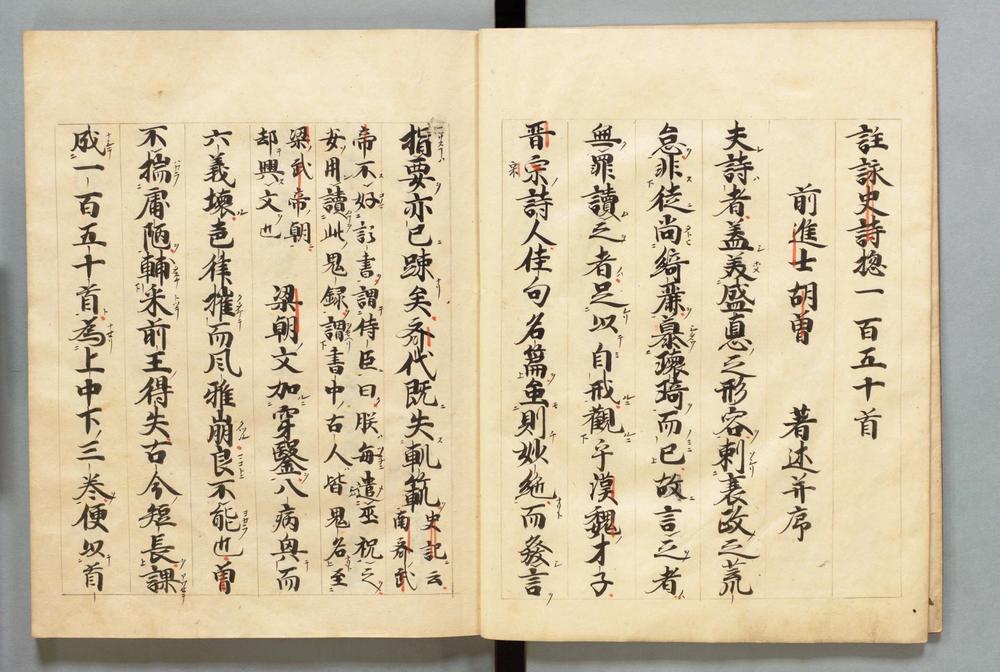 註詠史詩揔一百五十首
前進士胡曽 著述并序
夫詩者盖美盛悳之形容刺衰政之荒
怠非徒尚綺靡慕瓌琦而已故言之者
無罪讀之者足以自戒觀乎漢魏才子
晋宗詩人佳句名篇虽則妙絶而發言
指要亦已踈矣齐代既失軌範
史記云
南齐武
帝不好訟書謂侍臣曰朕每遣巫祝之
女用讀此鬼録謂書中古人皆鬼名至
梁武帝朝
却興文也
梁朝文加穿鑿八病興而
六義壊邑律摧而風雅崩良不能也曽
不揣庸陋輔采前王得失古今短長課
成一百五十首為上中下三巻便以首